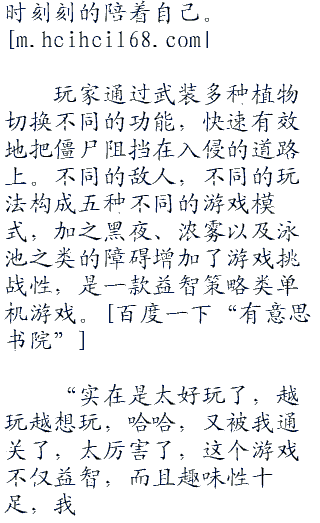 时刻刻的陪着自己。
[m.hcihci168.com|
玩家通过武装多种植物
切换不同的功能，快速有效
地把僵尸阻挡在入侵的道路
上。不同的敌人，不同的玩
法构成五种不同的游戏模
式，加之黑夜、浓雾以及泳
池之类的障碍增加了游戏挑
战性，是一款益智策略类单
机游戏。[百度一下“有意思
书院”]
“实在是太好玩了，越
玩越想玩，哈哈，又被我通
关了，太厉害了，这个游戏
不仅益智，而且趣味性十
足，我